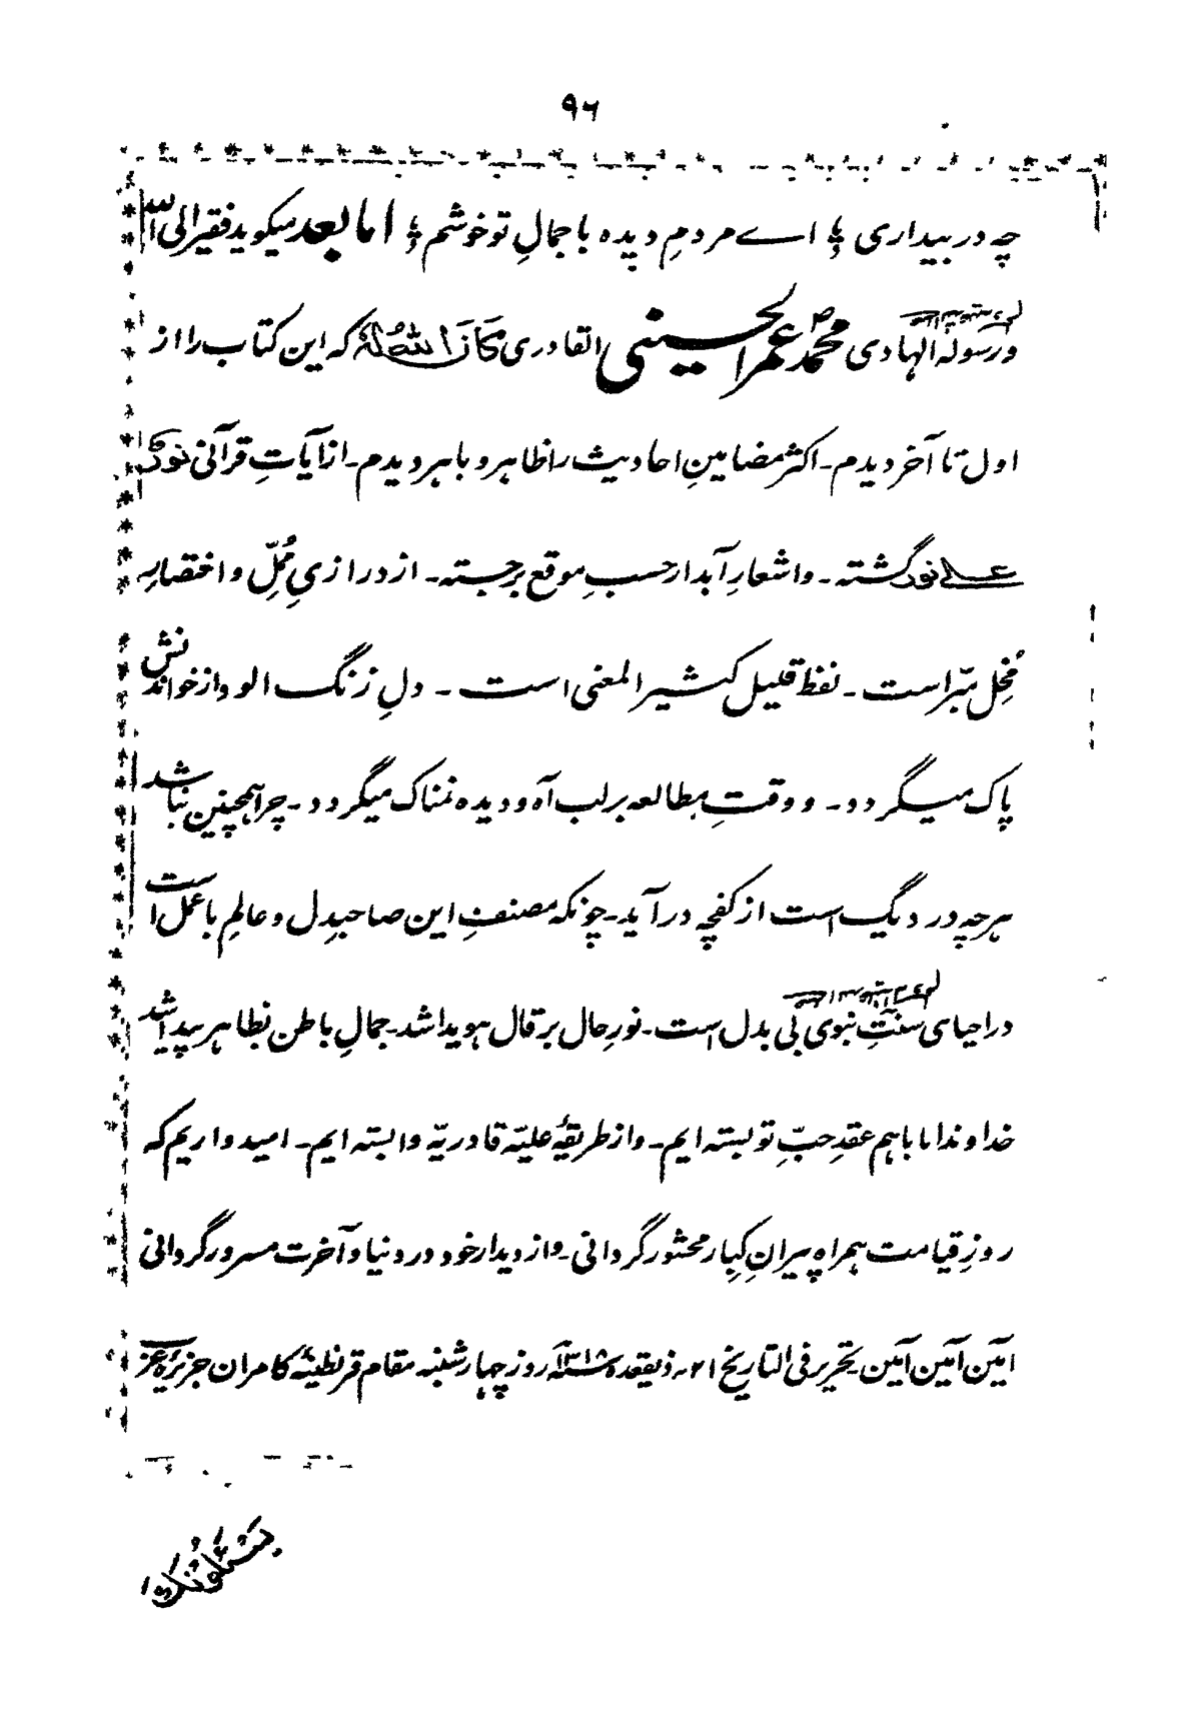 ۹۶
چہ در بیداری ؛ اے مردمِ دیدہ با جمالِ تو خوشم ؛ اما بعد میگوید فقیر الی اللہ
و رسولہ الہادی محمد عمر الحسینی القادری کَانَ اللہُ لَہٗ کہ این کتاب را از
اول تا آخر دیدم ۔ اکثر مضامینِ احادیث را ظاہر و باہر دیدم ۔ از آیاتِ قرآنی نورٌ
علے نور گشتہ ۔ و اشعارِ آبدار حسبِ موقع برجستہ ۔ از درازیِ مُمِلّ و اختصارِ
مُخِل مبّرا ست ۔ لفظ قلیل کثیر المعنی است ۔ دلِ زنگ الود از خواندنش
پاک میگردد ۔ و وقتِ مطالعہ بر لب آہ و دیدہ نمناک میگردد ۔ چرا ہمچنین نباشد
ہرچہ در دیگ است از کفچہ در آید ۔ چونکہ مصنفِ این صاحبدِل و عالمِ باعمل است
در احیای سنتِ نبوی بی بدل است ۔ نورِ حال بر قال ہویدا شد ۔ جمالِ باطن بظاہر پیدا شد
خداوندا ما باہم عقدِ حبِّ تو بستہ ایم ۔ و از طریقۂ علیّہ قادریّہ وابستہ ایم ۔ امیدواریم کہ
روزِ قیامت ہمراہِ پیرانِ کِبار محشور گردانی ۔ و از دیدار خود در دنیا و آخرت مسرور گردانی
آمین آمین آمین ۔ تحریر فی التاریخ ۲۱ ۔ ذیقعدہ ۱۳۱۵ روز چہارشنبہ مقام قرنطینۂ کامران جزیرۂ
یَسْئَلُوْنَکَ